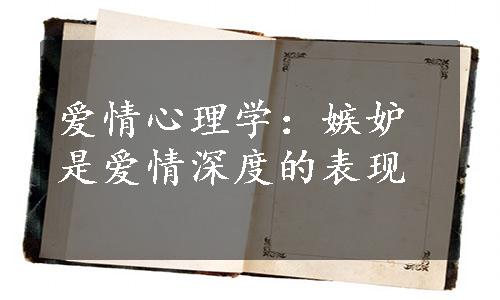 爱情心理学：嫉妒
是爱情深度的表现